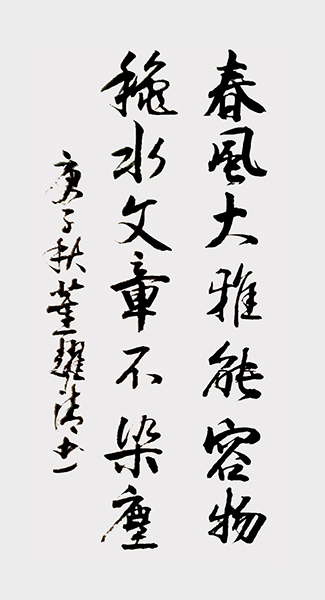 春風大雅能容物
穐水文章不染塵
庚子秋董耀清书